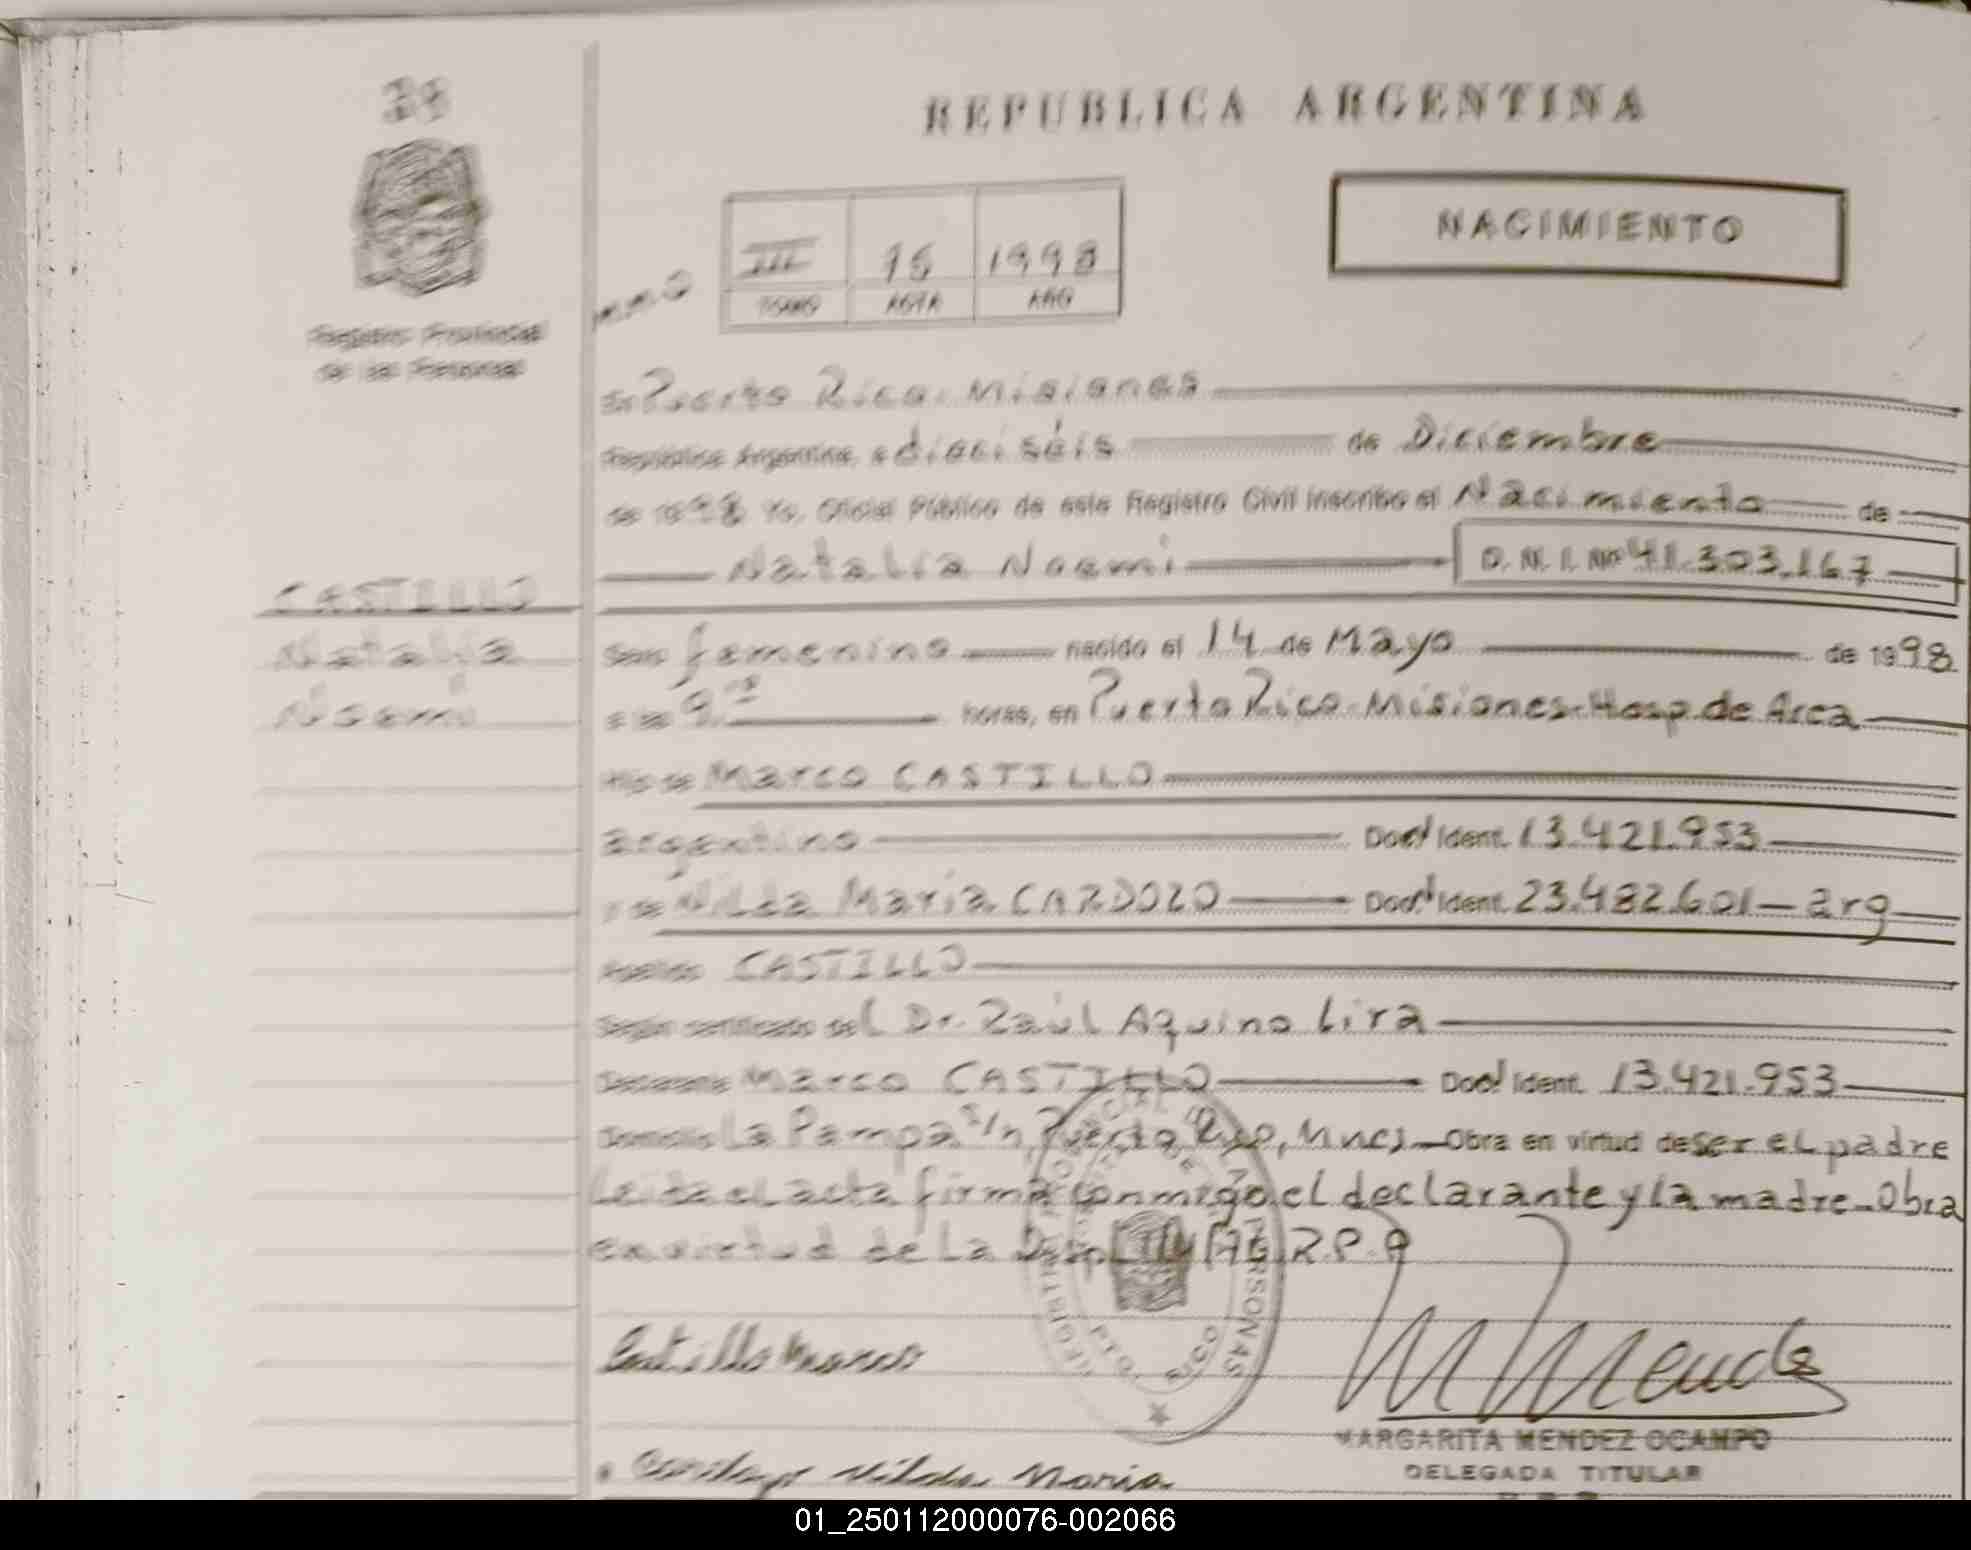 REPUBLICA ARGENTINA
NACIMIENTO
III 1998
TOMO ACTA AÑO
Registro Provincial
de las Personas
En Puerto Rico. Misiones
República Argentina, a dieciséis de Diciembre
de 1998 Yo, Oficial Público de este Registro Civil inscribo el Nacimiento de
Natalia Noemi D.N.I. Nº 41.303.167
CASTILLO
Natalia
Noemi
Sexo femenino nacido el 14 de Mayo de 1998
a las 9. horas, en Puerto Rico-Misiones-Hosp. de Area
Hijo de Marco CASTILLO
argentino Doc. Ident. 13.421.953
y de Nilda Maria CARDOZO Doc. Ident. 23.482.601-arg
Apellido CASTILLO
Según certificado del Dr. Raúl Aquino Lira
Declarante Marco CASTILLO Doc. Ident. 13.421.953
Domicilio La Pampa s/n, Puerto Rico, Mnes Obra en virtud de ser el padre
Leida el acta firma conmigo el declarante y la madre-Obra
en virtud de La Disp. R.P.P
REGISTRO PROVINCIAL DE LAS PERSONAS
PTO. RICO
Castillo Marco
M Mendez
MARGARITA MENDEZ OCAMPO
DELEGADA TITULAR
Cardozo Nilda Maria
01_250112000076-002066